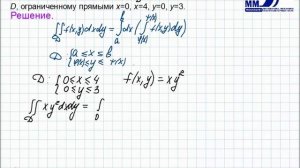 ММ
D, ограниченному прямыми x=0, x=4, y=0, y=3.
Решение.
∬_D f(x,y)dxdy = ∫_a^b dx (∫_{φ(x)}^{ψ(x)} f(x,y)dy)
D: { a ≤ x ≤ b
φ(x) ≤ y ≤ ψ(x)
D: { 0 ≤ x ≤ 4 f(x,y) = xy²
0 ≤ y ≤ 3
∬_D xy² dxdy = ∫_0